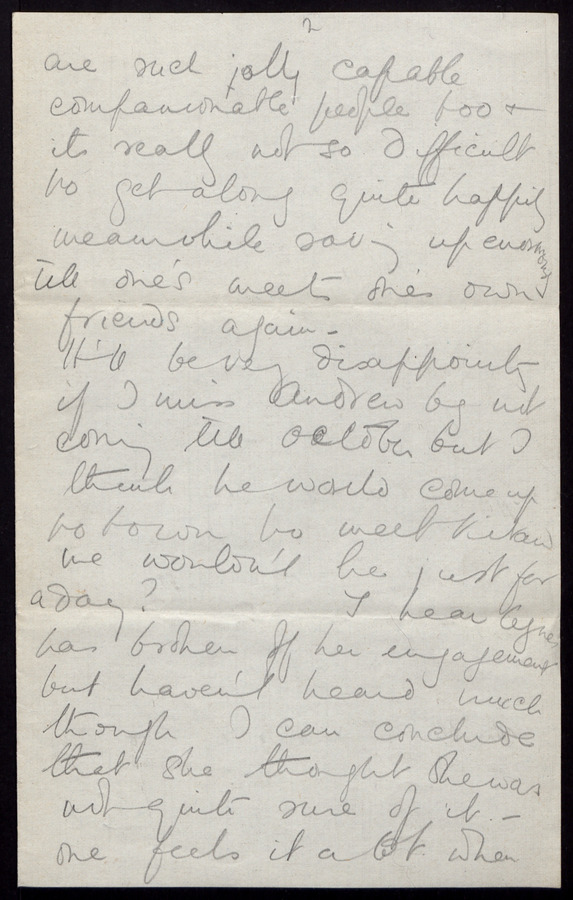 2
are such jolly capable
companionable people too &
its really not so difficult
to get along quite happily
meanwhile saving up
till one's meets one's own
friends again -
It'll be very disappointing
if I miss Andrew by not
coming till October but I
think he would come up
to town to meet
me wouldn't he just for
a day? I hear Agnes
has broken off her engagement
but haven't heard much
though I can conclude
that she thought she was
not quite sure of it -
one feels it a bit when